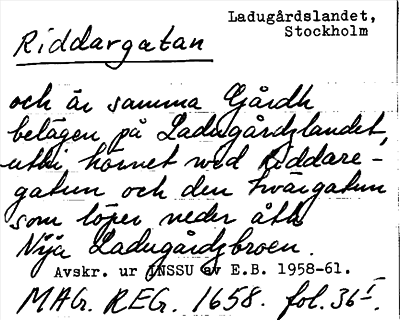 Ladugårdslandet,
Stockholm
Riddargatan
och är samma Gårdh
belägen på Ladugårdzlandet,
uthi hörnet wid Riddare-
gatun och den twärgatun
som löper neder åth
Nÿa Ladugårdzbroen.
Avskr. ur INSSU av E.B. 1958-61.
MAGr. REG. 1658. fol. 36